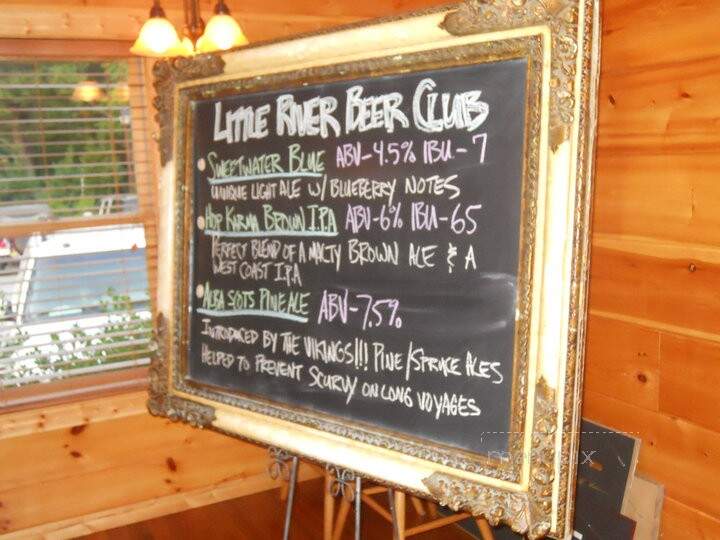 LITTLE RIVER BEER CLUB
SWEETWATER BLUE ABV-4.5% IBU-7
UNIQUE LIGHT ALE W/ BLUEBERRY NOTES
HOP KARMA BROWN I.P.A ABV-6% IBU-65
PERFECT BLEND OF A MALTY BROWN ALE & A
WEST COAST I.P.A
ALBA SCOTS PINE ALE ABV-7.5%
INTRODUCED BY THE VIKINGS!!! PINE/SPRUCE ALES
HELPED TO PREVENT SCURVY ON LONG VOYAGES